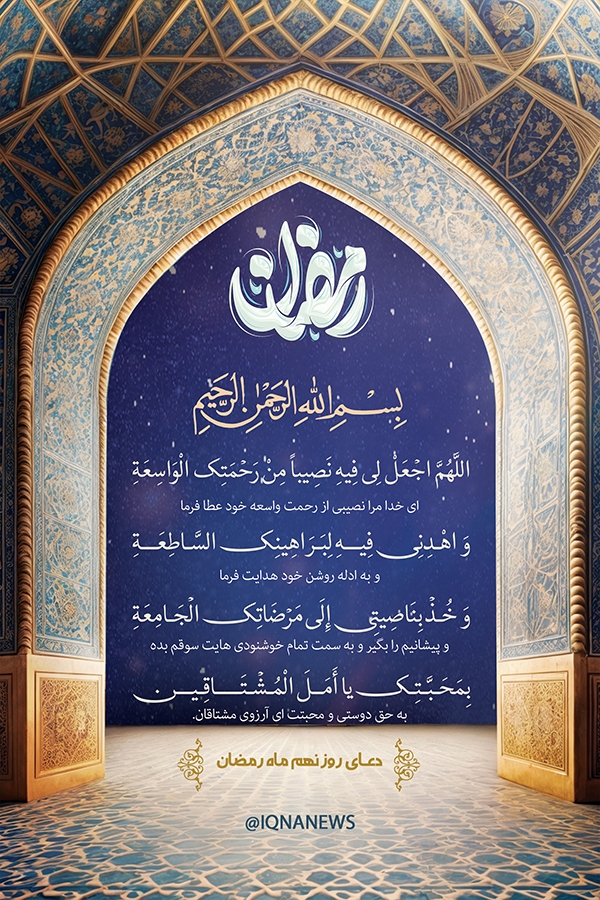 رمضان
بِسْمِ اللهِ الرَّحْمٰنِ الرَّحِيمِ
اللَّهُمَّ اجْعَلْ لِی فِیهِ نَصِیباً مِنْ رَحْمَتِکَ الْوَاسِعَةِ
ای خدا مرا نصیبی از رحمت واسعه خود عطا فرما
وَ اهْدِنِی فِیهِ لِبَرَاهِینِکَ السَّاطِعَةِ
و به ادله روشن خود هدایت فرما
وَ خُذْ بِنَاصِیَتِی إِلَى مَرْضَاتِکَ الْجَامِعَةِ
و پیشانیم را بگیر و به سمت تمام خوشنودی هایت سوقم بده
بِمَحَبَّتِکَ یا أَمَلَ الْمُشْتَاقِینَ
به حق دوستی و محبتت ای آرزوی مشتاقان.
دعای روز نهم ماه رمضان
@IQNANEWS